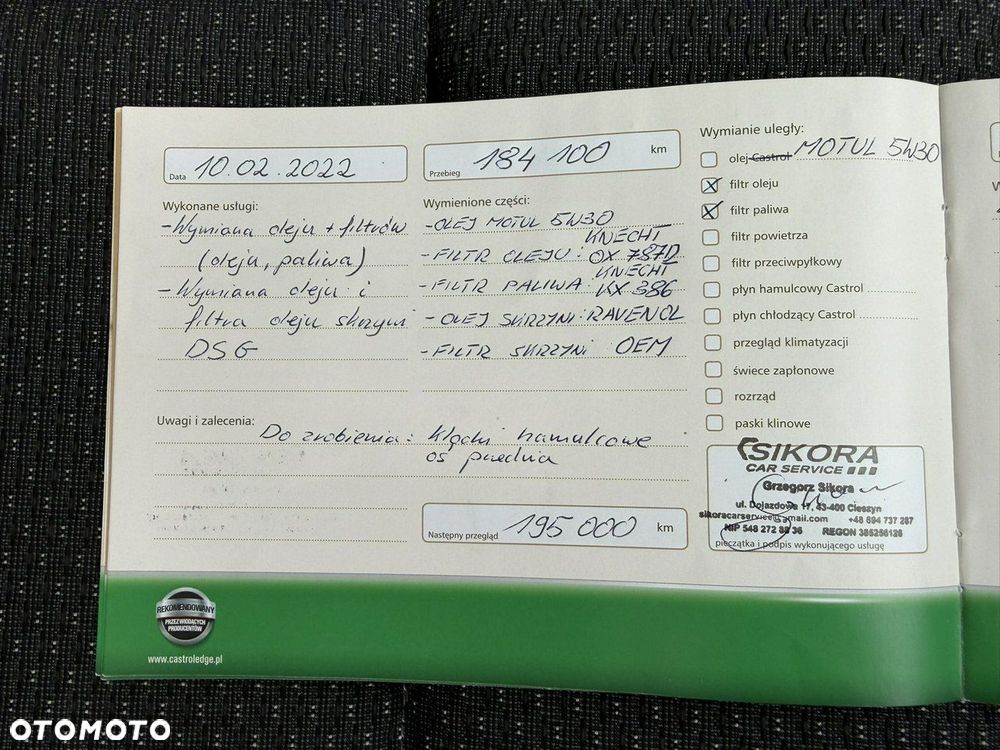 Data 10.02.2022
Przebieg 184 100 km
Wykonane usługi:
-Wymiana oleju + filtrów
(oleju, paliwa)
- Wymiana oleju i
filtra oleju skrzyni
DSG
Wymienione części:
-OLEJ MOTUL 5W30
KNECHT
-FILTR OLEJU: OX 787D
KNECHT
-FILTR PALIWA KX 386
- OLEJ SKRZYNI: RAVENOL
-FILTR SKRZYNI OEM
Uwagi i zalecenia:
Do zrobienia: klocki hamulcowe
oś przednia
Następny przegląd 195 000 km
Wymianie uległy:
olej Castrol MOTUL 5W30
filtr oleju
filtr paliwa
filtr powietrza
filtr przeciwpyłkowy
płyn hamulcowy Castrol
płyn chłodzący Castrol
przegląd klimatyzacji
świece zapłonowe
rozrząd
paski klinowe
SIKORA
CAR SERVICE
Grzegorz Sikora
ul. Dojazdowa 17, 43-400 Cieszyn
sikoracarservice@gmail.com +48 694 737 287
NIP 548 272 88 36 REGON 385256126
pieczątka i podpis wykonującego usługę
REKOMENDOWANY
PRZEZ WIODĄCYCH
PRODUCENTÓW
www.castroledge.pl
OTOMOTO